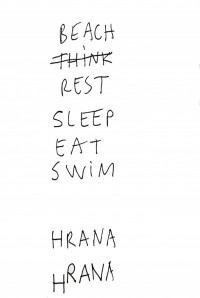 BEACH
THINK
REST
SLEEP
EAT
SWIM
HRANA
HRANA